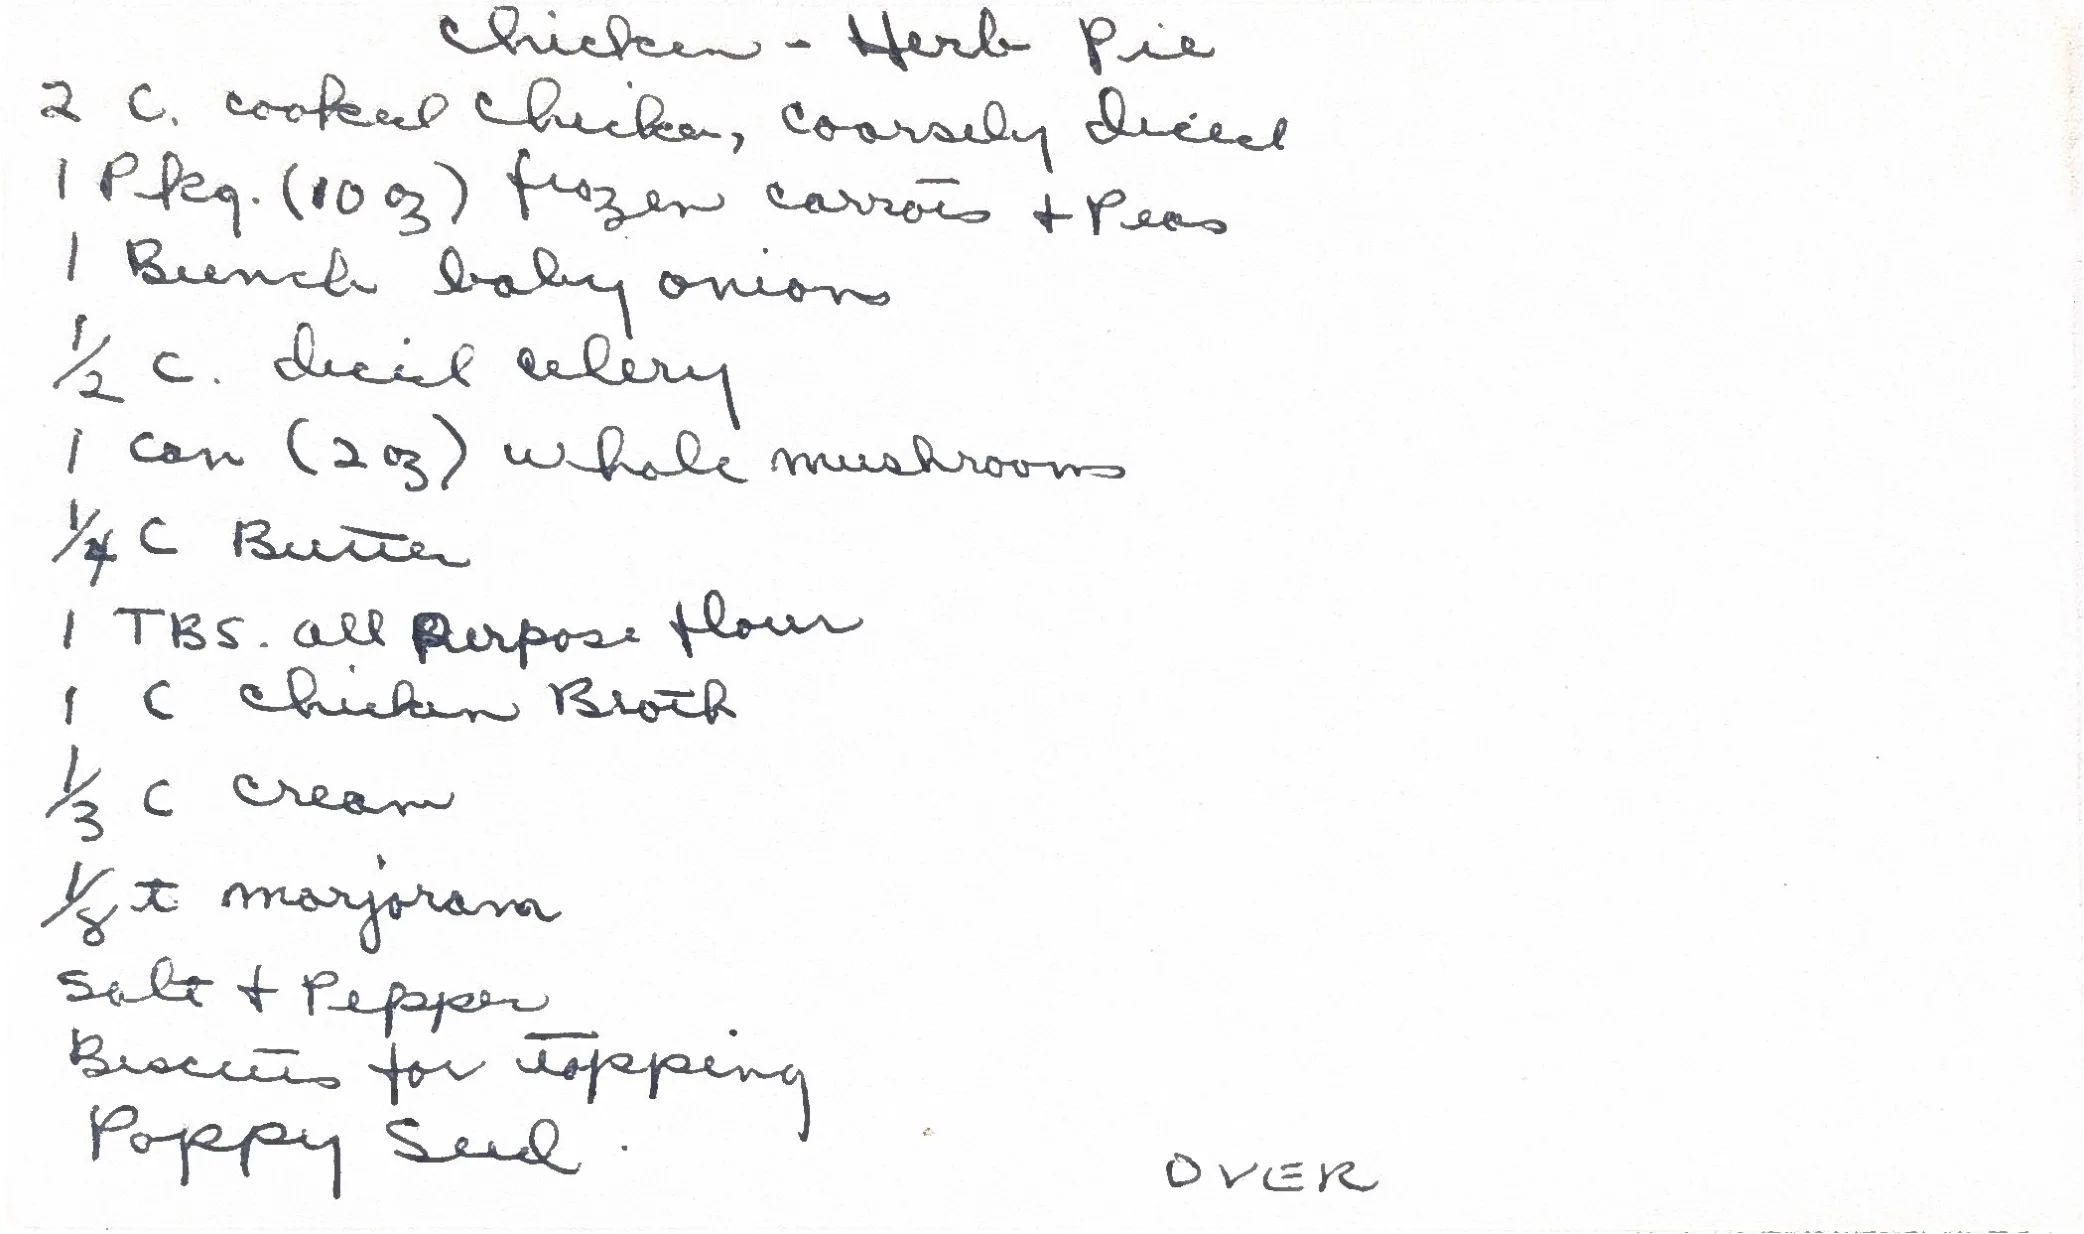 Chicken - Herb Pie
2 C. cooked chicken, coarsely diced
1 Pkg. (10 oz) frozen carrots + Peas
1 Bunch baby onions
1/2 C. diced celery
1 can (2 oz) whole mushrooms
1/4 C Butter
1 TBS. all Purpose flour
1 C chicken Broth
1/3 C cream
1/8 t marjoram
Salt + Pepper
Biscuits for topping
Poppy Seed.
OVER